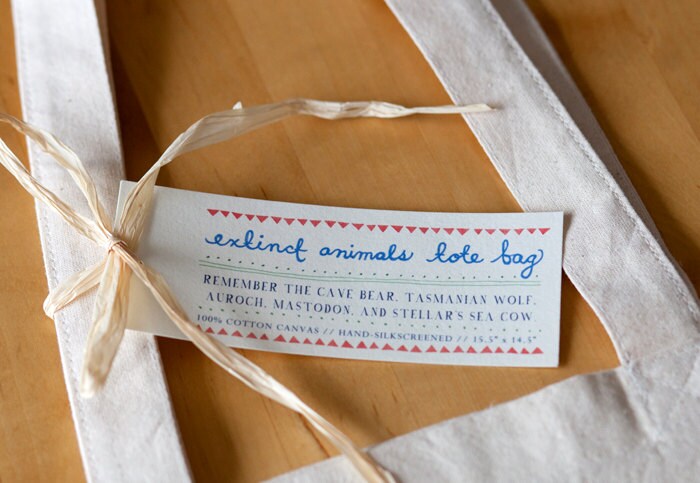 extinct animals tote bag
REMEMBER THE CAVE BEAR, TASMANIAN WOLF,
AUROCH, MASTODON, AND STELLAR'S SEA COW.
100% COTTON CANVAS // HAND-SILKSCREENED // 15.5" x 14.5"